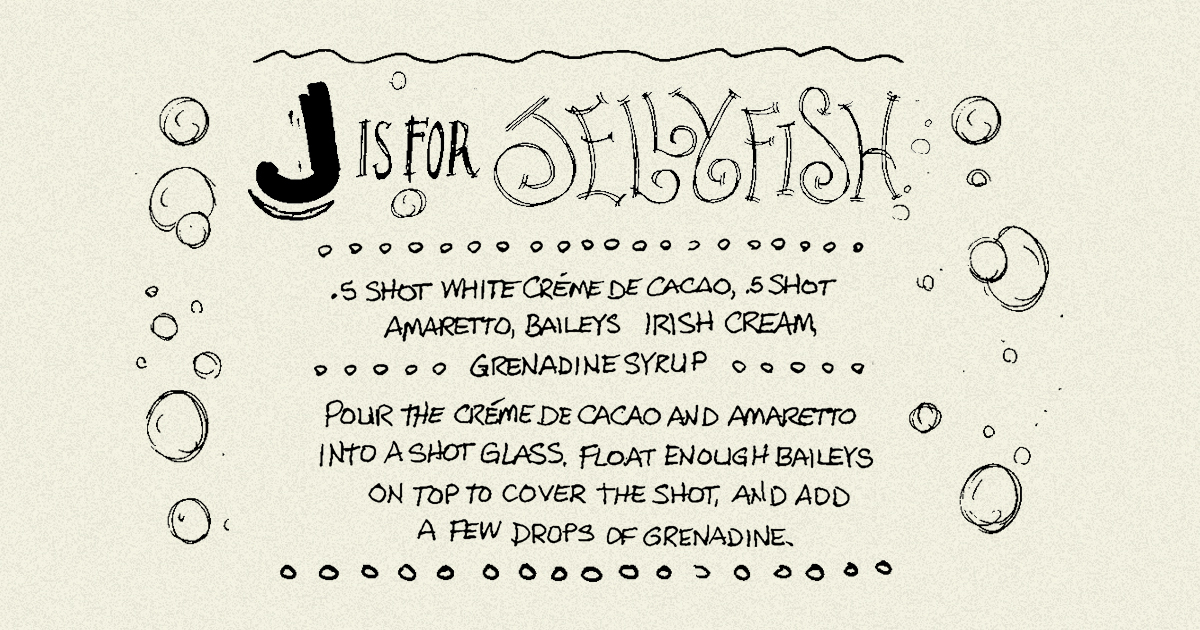 J IS FOR JELLYFISH
.5 SHOT WHITE CRÉME DE CACAO, .5 SHOT
AMARETTO, BAILEYS IRISH CREAM,
GRENADINE SYRUP
POUR THE CRÉME DE CACAO AND AMARETTO
INTO A SHOT GLASS. FLOAT ENOUGH BAILEYS
ON TOP TO COVER THE SHOT, AND ADD
A FEW DROPS OF GRENADINE.